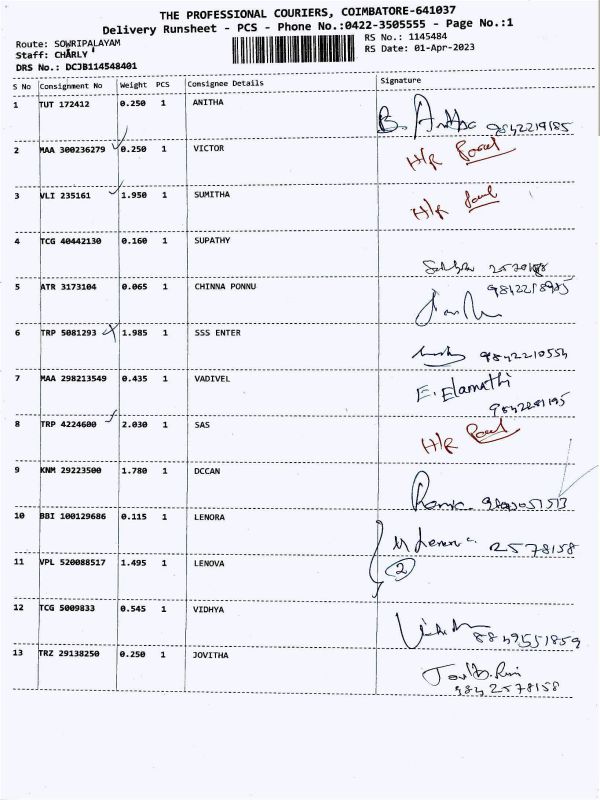 THE PROFESSIONAL COURIERS, COIMBATORE-641037
Delivery Runsheet - PCS - Phone No.:0422-3505555 - Page No.:1
Route: SOWRIPALAYAM RS No.: 1145484
Staff: CHARLY RS Date: 01-Apr-2023
DRS No.: DCJB114548401
S No Consignment No Weight PCS Consignee Details Signature
1 TUT 172412 0.250 1 ANITHA
B. Anitha 9842219185
2 MAA 300236279 0.250 1 VICTOR
H/R
3 VLI 235161 1.950 1 SUMITHA
H/R
4 TCG 40442130 0.160 1 SUPATHY
5 ATR 3173104 0.065 1 CHINNA PONNU
9842218985
6 TRP 5081293 1.985 1 SSS ENTER
9842210554
7 MAA 298213549 0.435 1 VADIVEL
E. Elamathi
8 TRP 4224600 2.030 1 SAS
H/R
9 KNM 29223500 1.780 1 DCCAN
10 BBI 100129686 0.115 1 LENORA
2578158
11 VPL 520088517 1.495 1 LENOVA
2
12 TCG 5009833 0.545 1 VIDHYA
8849551859
13 TRZ 29138250 0.250 1 JOVITHA
9842578158